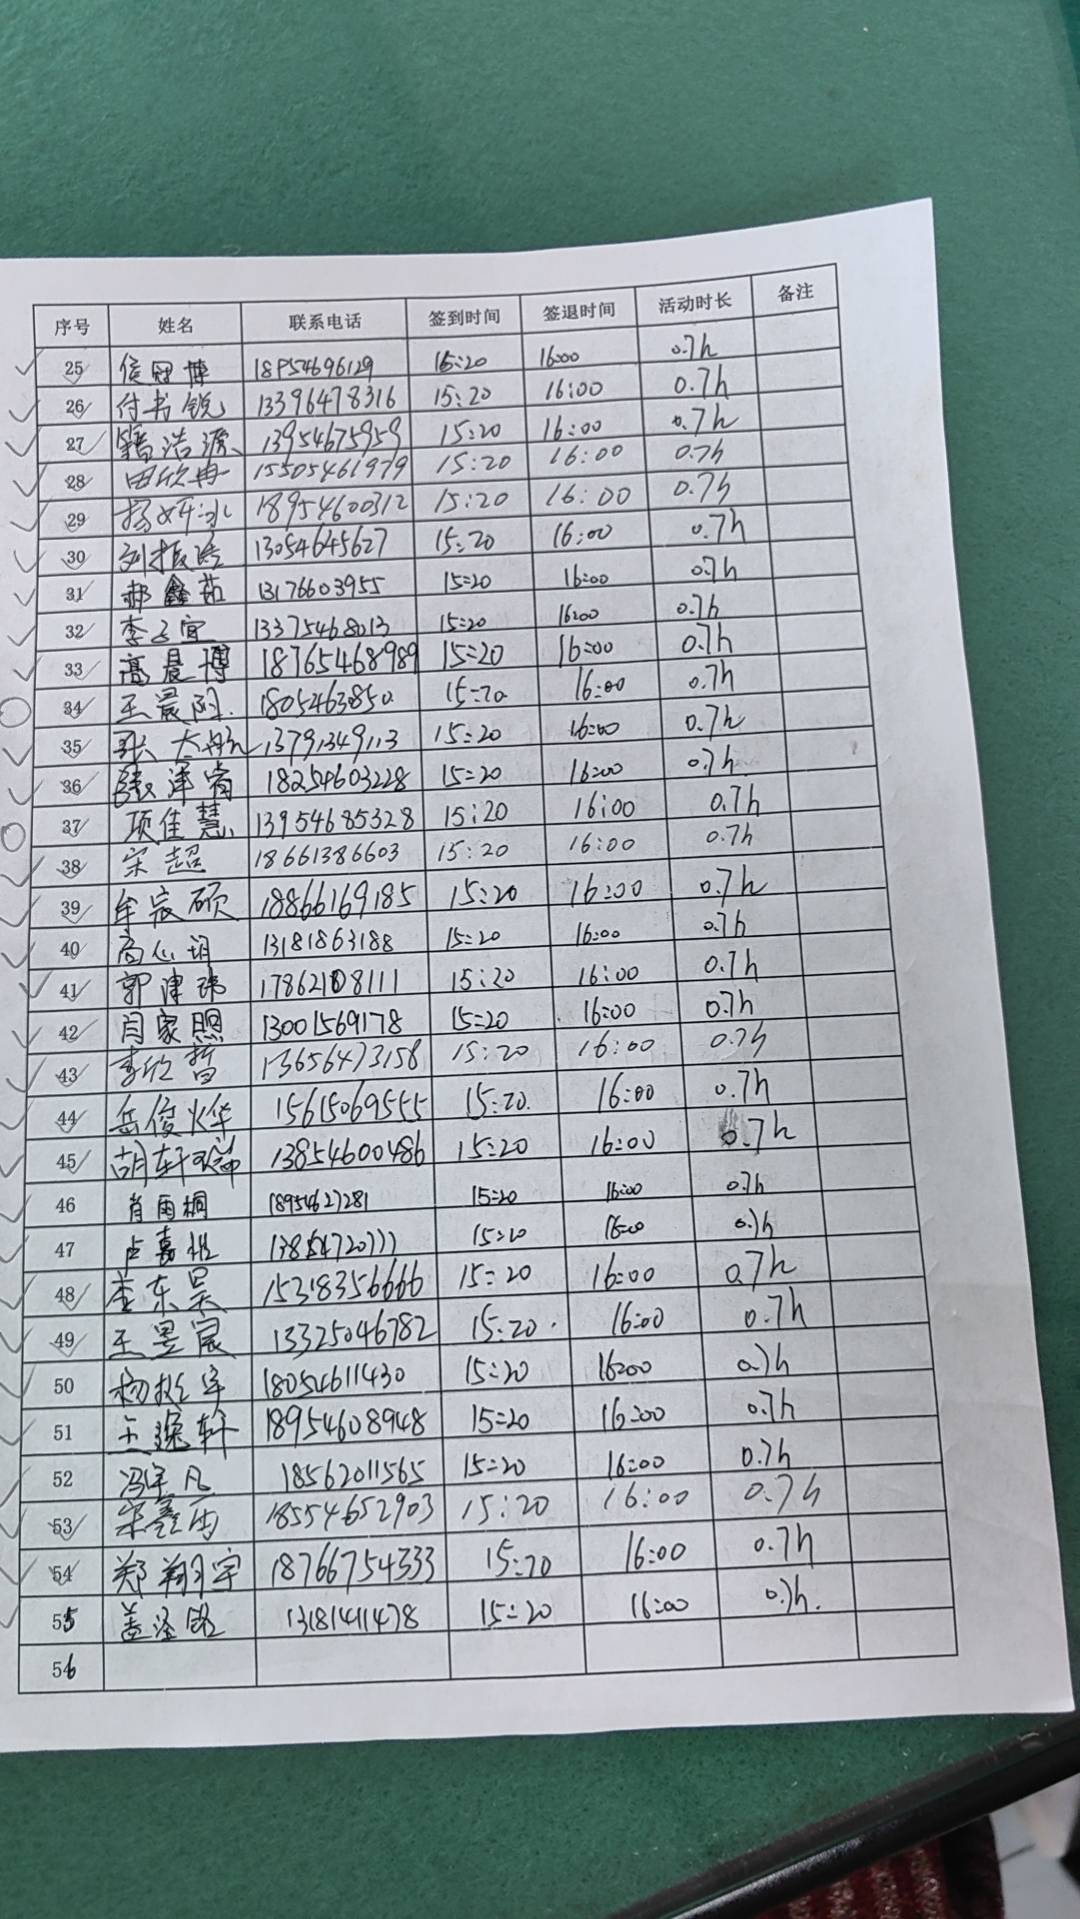 序号 姓名 联系电话 签到时间 签退时间 活动时长 备注
25 侯冠博 18954696129 15:20 16:00 0.7h
26 付书锐 13396478316 15:20 16:00 0.7h
27 籍浩源 13954675959 15:20 16:00 0.7h
28 田欣冉 15505461979 15:20 16:00 0.7h
29 杨妍冰 18954600312 15:20 16:00 0.7h
30 刘振 13054645627 15:20 16:00 0.7h
31 郝鑫茹 13176603955 15:20 16:00 0.7h
32 李子宜 13375468013 15:20 16:00 0.7h
33 高晨博 18765468989 15:20 16:00 0.7h
34 王晨阳 15:20 16:00 0.7h
35 张大航 13791349113 15:20 16:00 0.7h
36 张泽睿 18254603228 15:20 16:00 0.7h
37 项佳慧 13954685328 15:20 16:00 0.7h
38 宋超 18661386603 15:20 16:00 0.7h
39 牟宸硕 18866169185 15:20 16:00 0.7h
40 高心玥 13181863188 15:20 16:00 0.7h
41 郭津玮 17862108111 15:20 16:00 0.7h
42 闫家熙 13001569178 15:20 16:00 0.7h
43 李欣哲 13656473158 15:20 16:00 0.7h
44 岳俊烨 15615069555 15:20 16:00 0.7h
45 胡轩 13854600486 15:20 16:00 0.7h
46 肖雨桐 18954627281 15:20 16:00 0.7h
47 卢嘉 15:20 16:00 0.7h
48 董东昊 15318356666 15:20 16:00 0.7h
49 王昱宸 13325046782 15:20 16:00 0.7h
50 杨宇 18054611430 15:20 16:00 0.7h
51 王逸轩 18954608948 15:20 16:00 0.7h
52 冯宇凡 18562011565 15:20 16:00 0.7h
53 宋鑫雨 18554652903 15:20 16:00 0.7h
54 郑翔宇 18766754333 15:20 16:00 0.7h
55 盖泽铭 13181411478 15:20 16:00 0.7h.
56